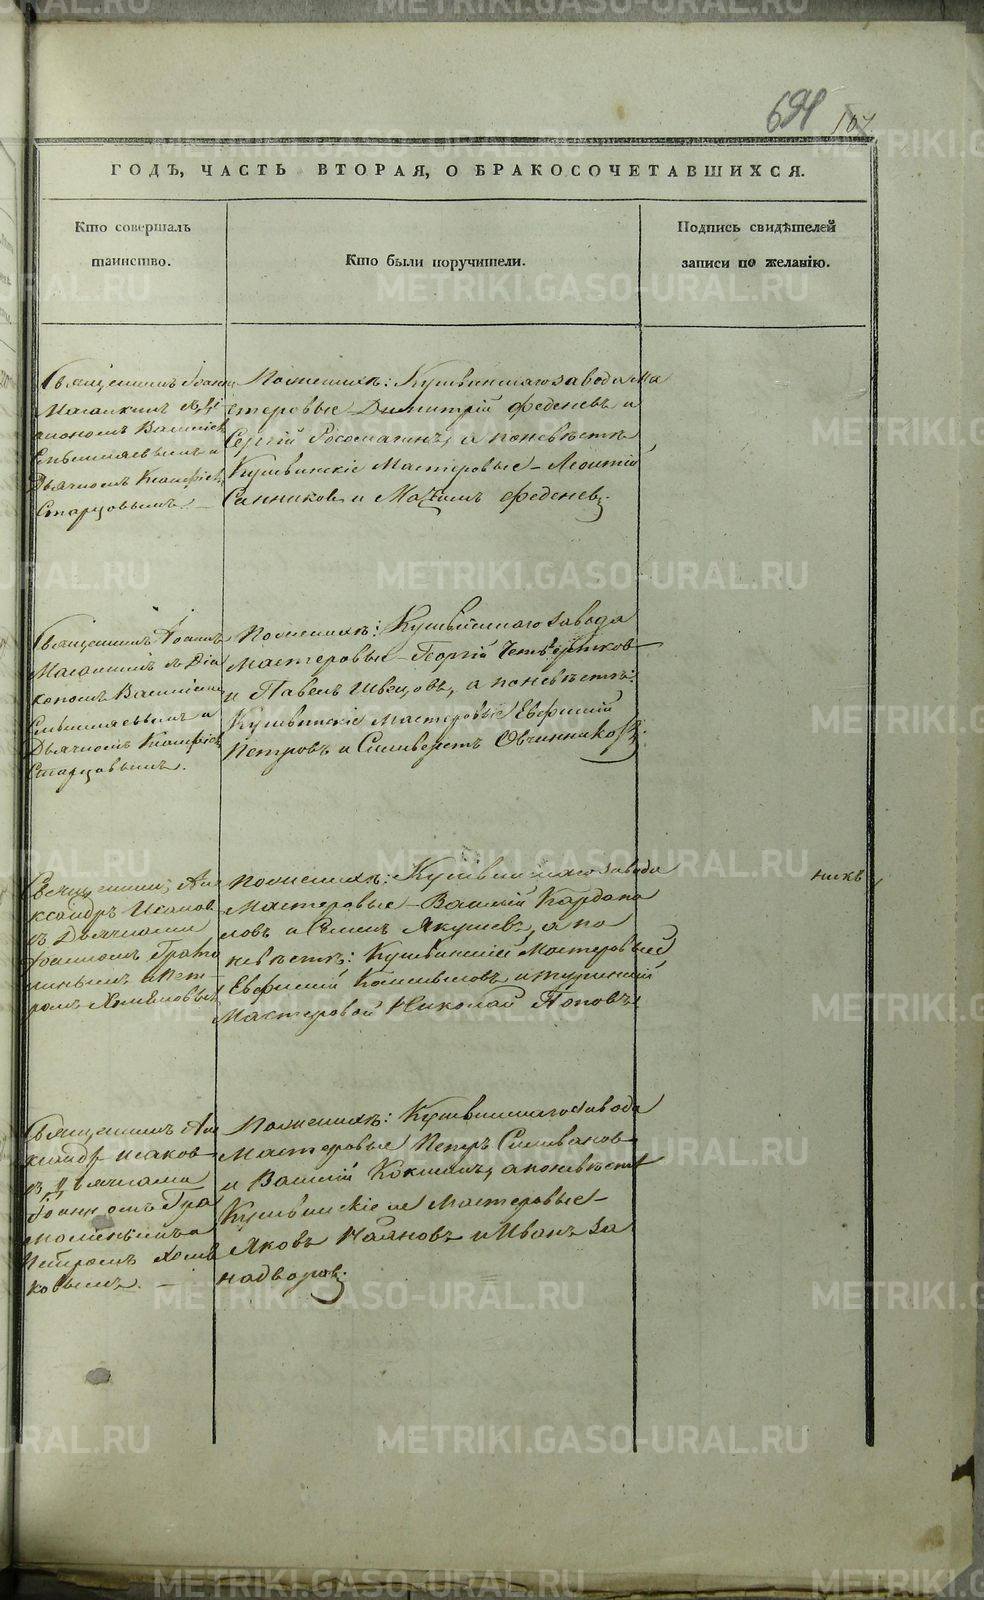 694 107
ГОДЪ, ЧАСТЬ ВТОРАЯ, О БРАКОСОЧЕТАВШИХСЯ.
Кто совершалъ
таинство.
Кто были поручители.
Подпись свидѣтелей
записи по желанію.
Священникъ Іоаннъ
съ Діа
кономъ Василіемъ
Емельяновымъ и
Дьячкомъ
Старцовымъ
По женихѣ: Кушвинскаго завода Ма
стеровые Димитрій Феденевъ и
Сергій Росомагинъ, а по невѣстѣ
Кушвинскіе Мастеровые Леонтій
Санниковъ и Максимъ Феденевъ.
Священникъ Іоаннъ
съ Діа
кономъ Василіемъ
Емельяновымъ и
Дьячкомъ
Старцовымъ.
По женихѣ: Кушвинскаго завода
Мастеровые Георгій Четвертковъ
и Павелъ Швецовъ, а по невѣстѣ:
Кушвинскіе мастеровые Евфимій
Петровъ и Сильверстъ Овчинниковъ.
Священникъ Але
ксандръ Исаков
съ Дьячками
Іоанномъ Грамо
линымъ и Пет
ромъ Хомяковымъ
По женихѣ: Кушвинскаго завода
Мастеровые Василій Кардапо
ловъ и Семенъ Якушевъ, а по
невѣстѣ: Кушвинскій Мастеровый
Евфимій и Туринскій
Мастеровой Николай Поповъ
никъ
Священникъ Але
ксандръ Исаков
съ Дьячками
Іоанномъ Гра
молинымъ и
Петромъ Хомя
ковымъ.
По женихѣ: Кушвинскаго завода
Мастеровые Петръ Селиванов
и Василій Кокшинъ, а по невѣстѣ
Кушвинскіе же Мастеровые
Яковъ Наяновъ и Иванъ За
надворовъ.
METRIKI.GASO-URAL.RU